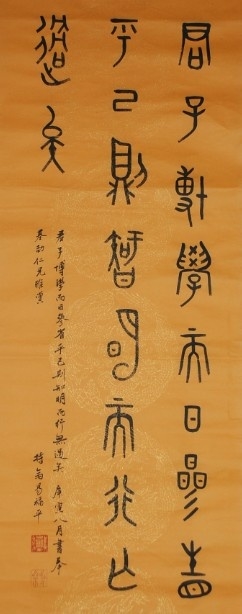 君子博學而日參省
乎己則智明而行亡
過矣
君子博學而日參省乎己則知明而行無過矣 庚寅八月書奉
仁兄雅賞